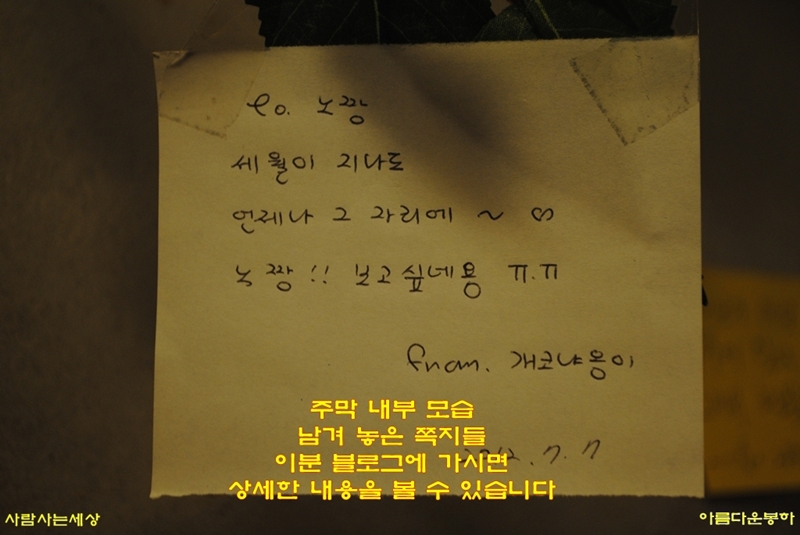 To. 노짱
세월이 지나도
언제나 그 자리에 ~ ♡
노짱!! 보고싶네용 ㅠ.ㅠ
from. 개코냐옹이
2012. 7. 7
주막 내부 모습
남겨 놓은 쪽지들
이분 블로그에 가시면
상세한 내용을 볼 수 있습니다
사람사는세상
아름다운봉하